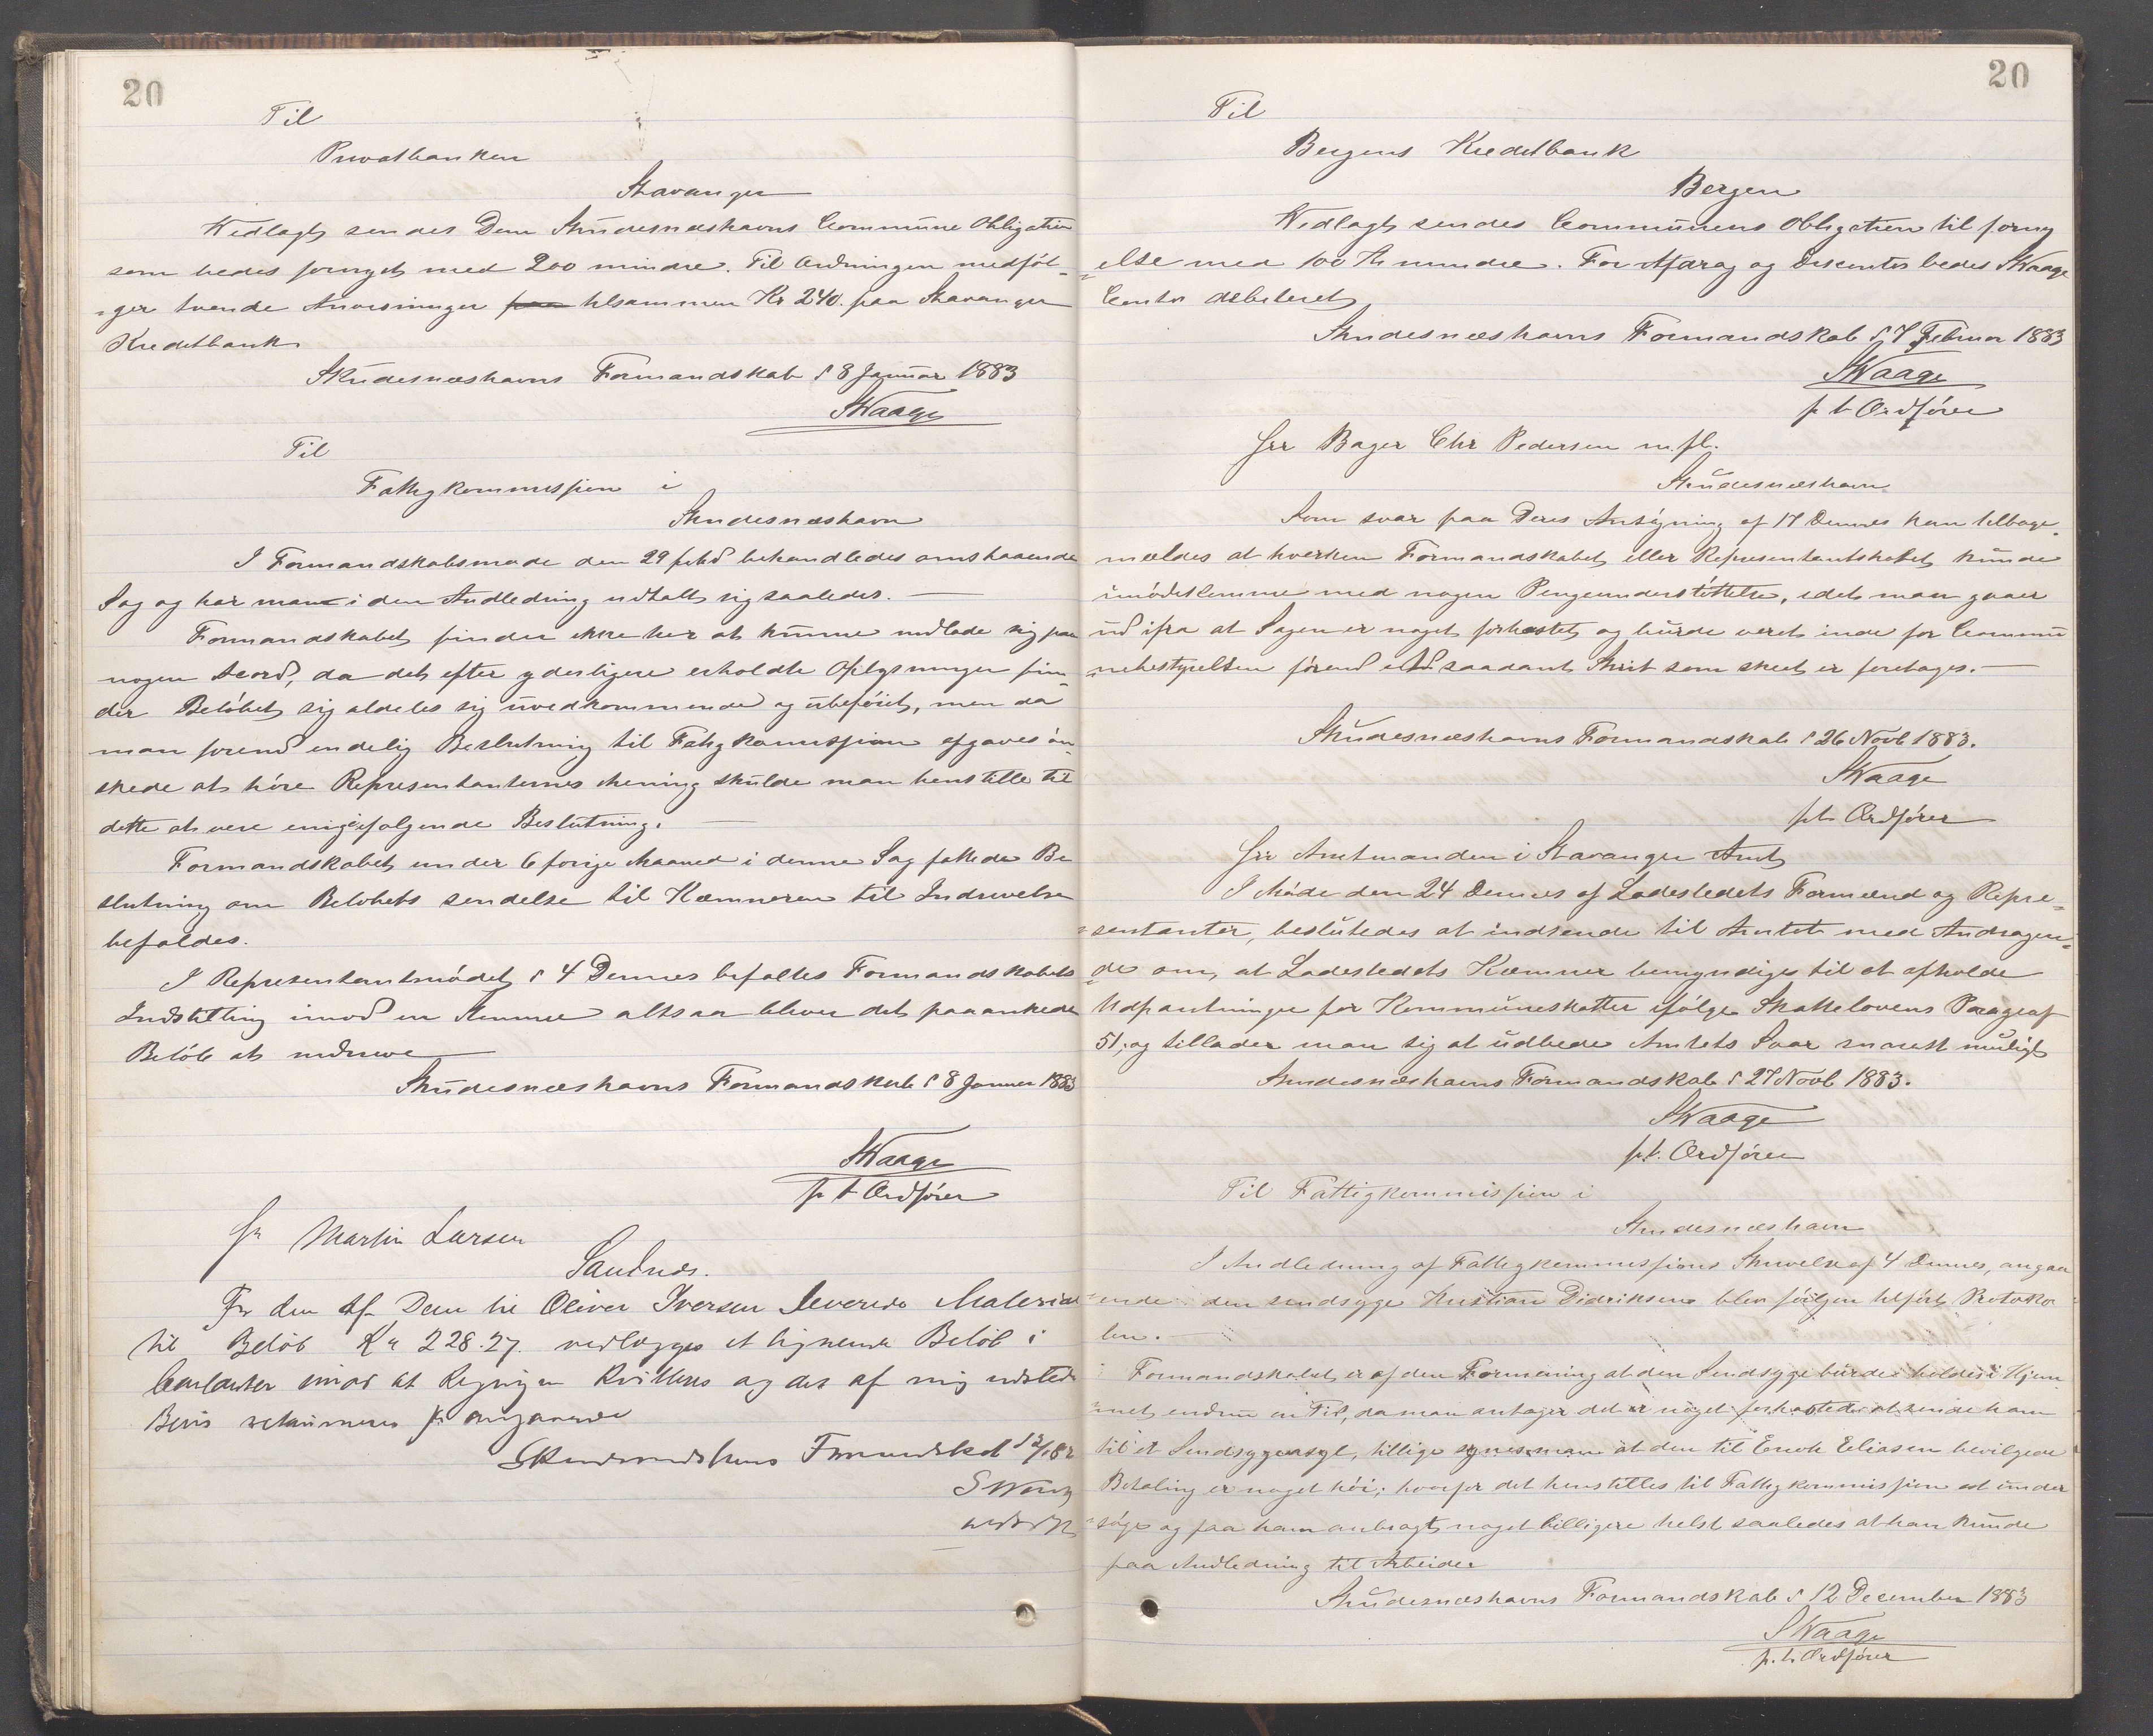 20
Til
Privatbanken
Stavanger
Vedlagt sendes Dem Skudesneshavns Commune Obligation
som bedes fornyet med 200 mindre. Til Ordningen medföl-
ger tvende Anvisninger paa tilsammen Kr 240. paa Stavanger
Kreditbank
Skudesneshavns Formandskab d 8 Januar 1883
SWaage
Til
Fattigkommissjion i
Skudesneshavn
I Formandskabsmøde den 29 f. behandledes omstaaende
Sag og har man i den Andledning udtalt sig saaledes. —
Formandskabet finder ikke her at kunne indlade sig paa
nogen Acord, da det efter yderligere erholdte Oplysninger fin-
der Belöbet sig aldeles sig uvedkommende og ubeföiet, men da
man forend endelig Beslutning til Fatigkomissjion afgaves ön-
skede at höre Representanternes Mening skulde man henstille til
dette at vere enig i følgende Beslutning. —
Formandskabet under 6 forrige Maaned i denne Sag fattede Be
slutning om Belobets sendelse til Kæmneren til Indrivelse
befoldes.
I Representantmödet d 4 Dennes befoltes Formandskabets
Indstilling imod en Stemme altsaa bliver det paaankede
Belöb at inddrive
Skudesneshavns Formandskab d 8 Januar 1883
SWaage
p t Ordförer
Hr Martin Larsen
Sandnes.
For den af Dem til Oliver Iversen leverede Material
til Belöb Kr 228.27. vedlægges et lignende Beløb i
Contanter imod at Regningen Kvitteres og det af mig udstedte
Bevis returneres
Skudesneshavns Formandskab
SWaage
20
Til
Bergens Kreditbank
Bergen
Vedlagt sendes Communens Obligation til forny
else med 100 Kr mindre. For Afdrag og Diskonto bedes SWaage
Conto debiteret
Skudesneshavns Formandskab d 7 Februar 1883
SWaage
p t Ordförer
Hrr Bager Chr Pedersen m. fl.
Skudesneshavn
Som svar paa Deres Ansögning af 17 Dennes kan tilbage
meldes at hverken Formandskabet eller Representantskabet kunde
imödekomme med nogen Pengeunderstöttelse, idet man gaaer
ud ifra at Sagen er noget forhastet og burde veret inde for Commu
nebestyrelsen förend et saadant Skrit som skeet er foretages. —
Skudesneshavns Formandskab d 26 Novb 1883.
SWaage
p.t. Ordförer
Hrr Amtmanden i Stavanger Amt
I Möde den 24 Dennes af Ladestedets Formænd og Repre-
sentanter, besluttedes at indsende til Amtet med Andragen-
de om, at Ladestedets Kæmner bemyndiges til at afholde
Udpantninger for Kommuneskatter ifölge Skattelovens Paragraf
51, og tillader man sig at udbede Amtets Svar snarest muligt
Skudesneshavns Formandskab d 27 Novb 1883.
SWaage
p.t. Ordförer
Til Fattigkommissjion i
Skudesneshavn
I Andledning af Fattigkommissjions Skrivelse af 4 Dennes, angaa
ende den sindsyge Kristian Didriksen blev fölgen tilfört Protoko
len. —
Formandskabet er af den Formening at den Sindsyge burde holdes i Hjem
met endnu en Tid, da man antager det er noget forhastet at sende ham
til et Sindsygeasyl, tillige synes man at den til Enok Eliasen bevilgede
Betaling er noget höi; hvorfor det henstilles til Fattigkommissjion at under
söge og faa ham anbragt noget billigere helst saaledes at han kunde
faa Andledning til Arbeide
Skudesneshavns Formandskab d 12 December 1883
SWaage
p. t. Ordförer